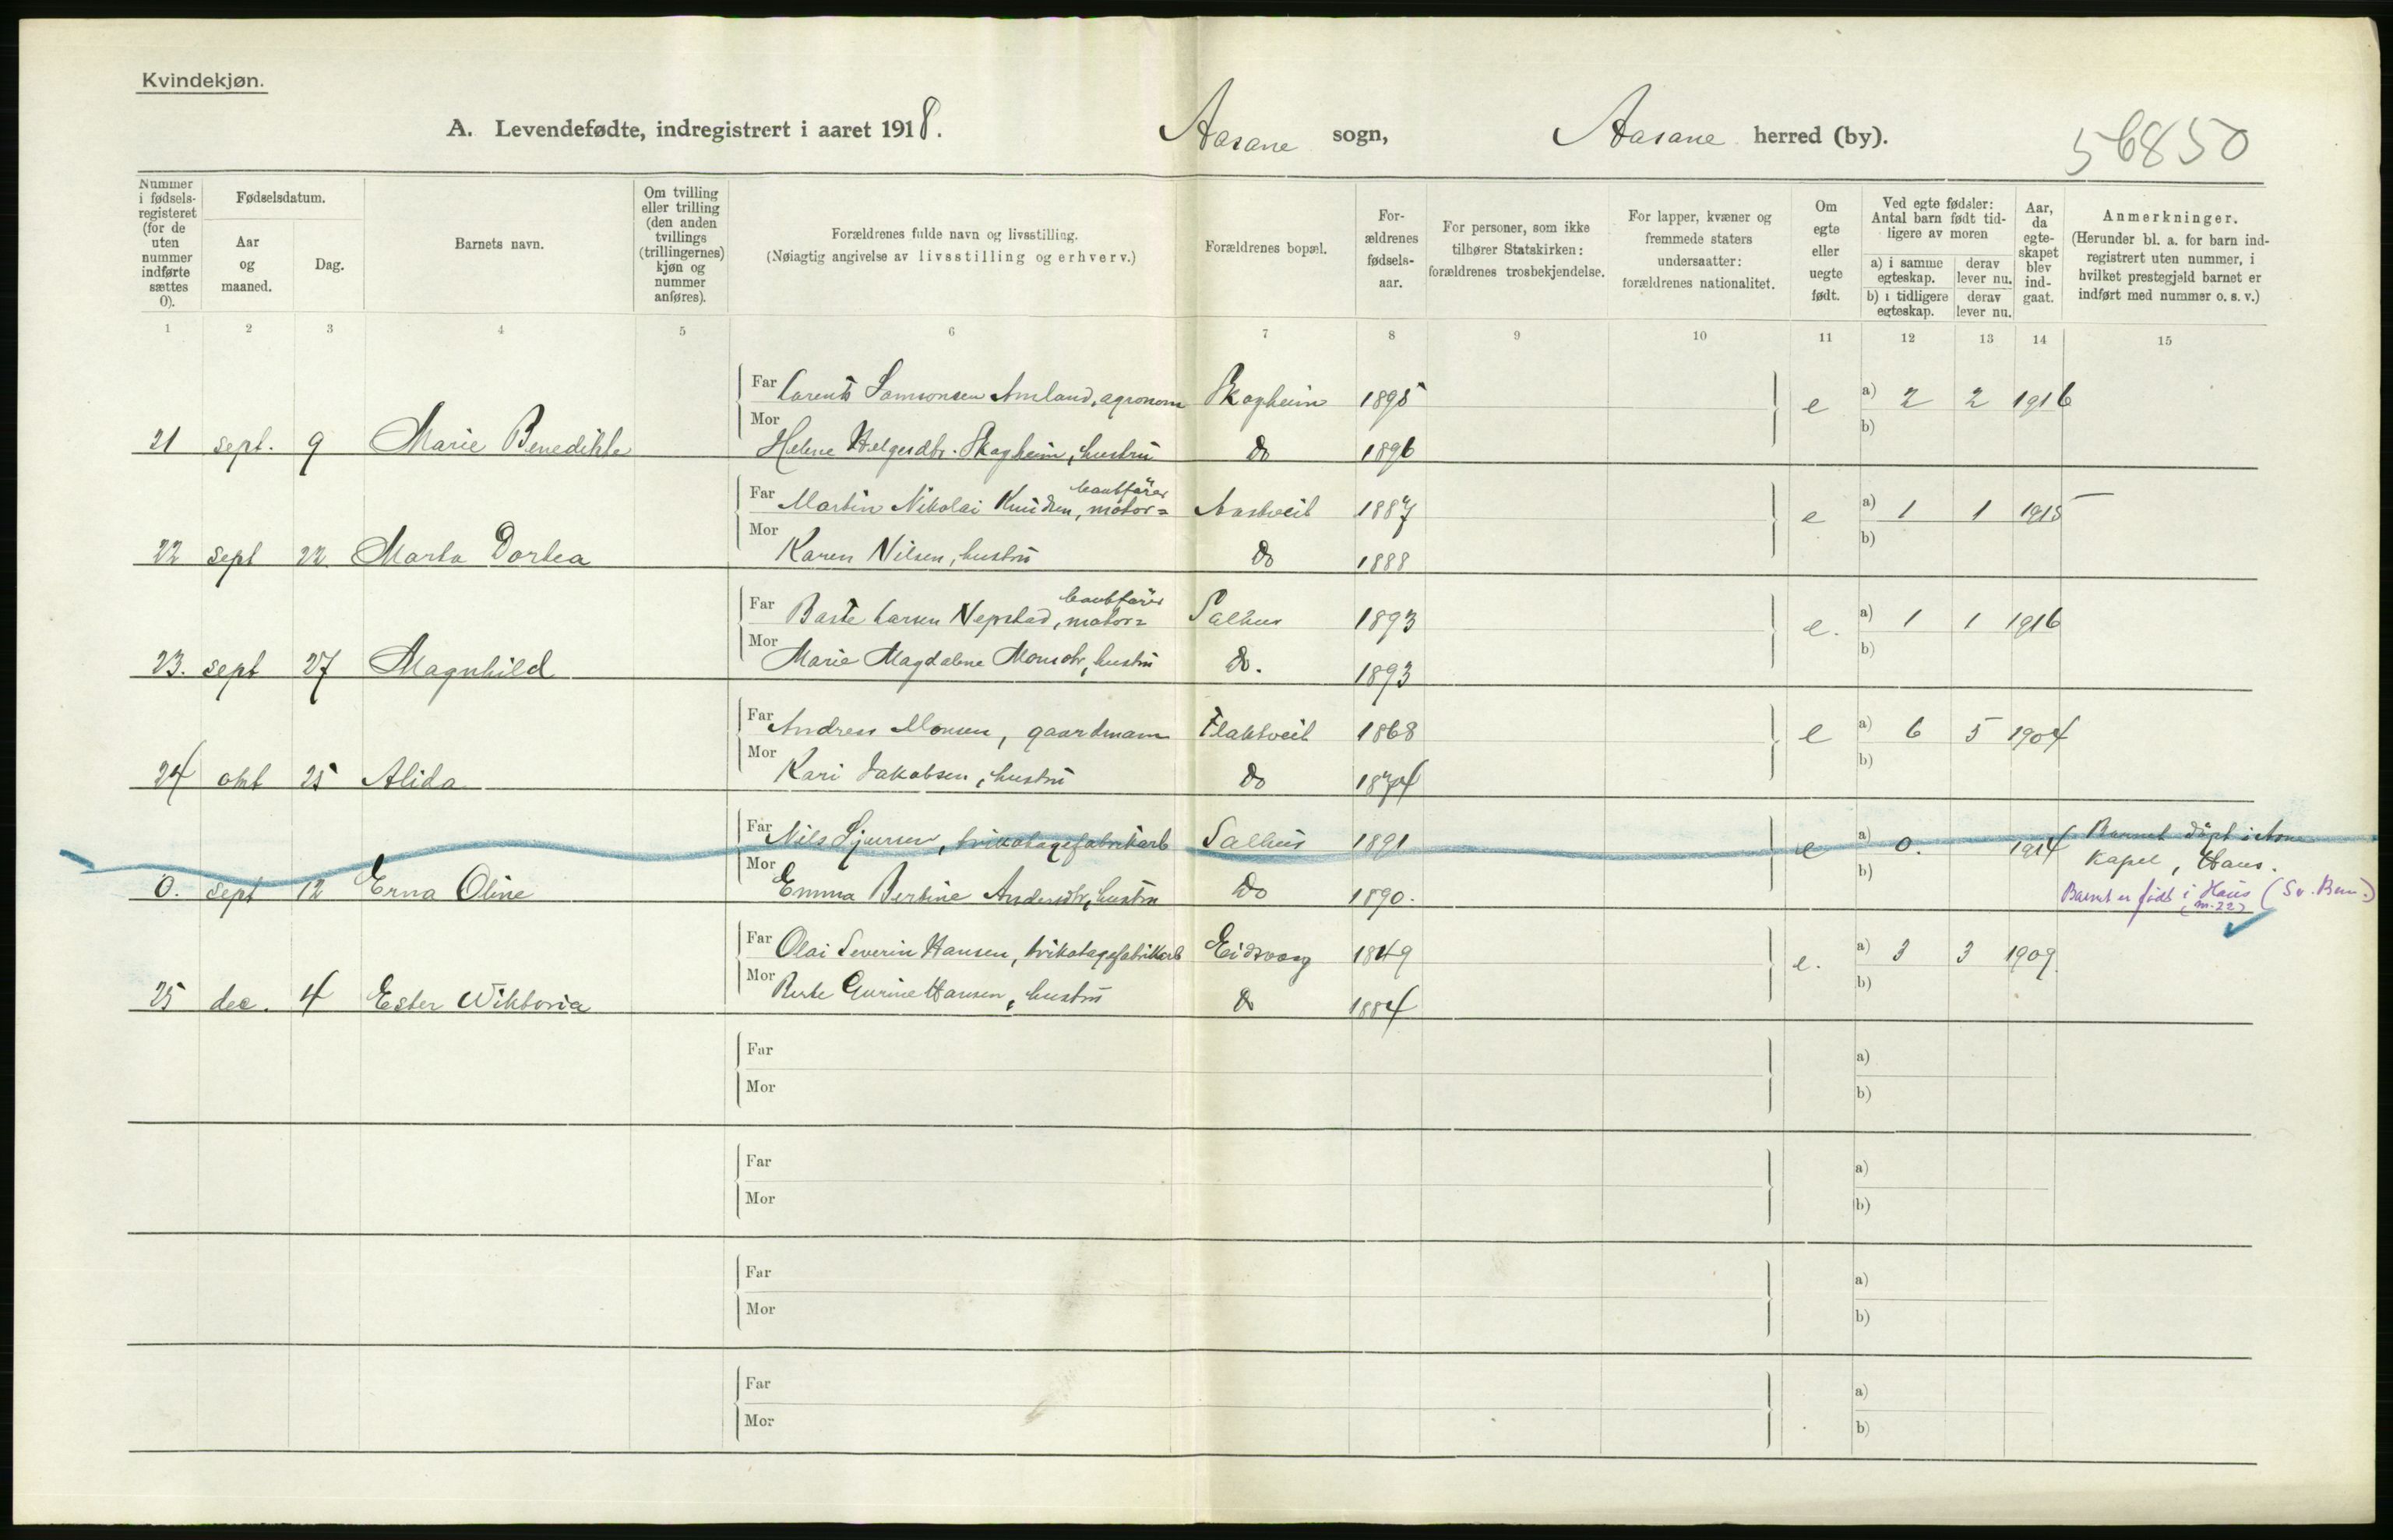 Kvindekjøn.
A. Levendefødte, indregistrert i aaret 1918. Aasane sogn, Aasane herred (by). 56850
Nummer i fødselsregisteret (for de uten nummer indførte sættes 0).
Fødselsdatum.
Aar og maaned.
Dag.
Barnets navn.
Om tvilling eller trilling (den anden tvillings (trillingernes) kjøn og nummer anføres).
Forældrenes fulde navn og livsstilling.
(Nøiagtig angivelse av livsstilling og erhverv.)
Forældrenes bopæl.
Forældrenes fødselsaar.
For personer, som ikke tilhører Statskirken: forældrenes trosbekjendelse.
For lapper, kvæner og fremmede staters undersaatter: forældrenes nationalitet.
Om egte eller uegte født.
Ved egte fødsler: Antal barn født tidligere av moren
a) i samme egteskap. derav lever nu.
b) i tidligere egteskap. derav lever nu.
Aar, da egteskapet blev indgaat.
Anmerkninger.
(Herunder bl. a. for barn indregistrert uten nummer, i hvilket prestegjeld barnet er indført med nummer o. s. v.)
1 2 3 4 5 6 7 8 9 10 11 12 13 14 15
Far Larents Samsonsen Amland, agronom Skagheim 1895 e a) 2 2 1916
21 sept. 9 Marie Benedikte Mor Helene Helgesdtr. Skagheim, hustru do 1896 b)
Far Martin Nikolai Knudsen, motor= baatfører Aastveit 1887 e a) 1 1 1915
22 sept 22. Marta Dortea Mor Karen Nilsen, hustru do 1888 b)
Far Larsen Nepstad, motor= baatfører Salhus 1893 e. a) 1 1 1916
23. sept 27 Magnhild Mor Marie Magdalene Monsdtr, hustru do. 1893 b)
Far Andreas Monsen, gaardmann Flaktveit 1868 e a) 6 5 1904
24 okt 25 Alida Mor Kari Jakobsen, hustru do 1874 b)
Far Nils Sjursen, trikotagefabrikarb Salhus 1891 e a) 0. 1914 Barnet døpt i kapel, Haus.
0. sept 12 Erna Oline Mor Emma Bertine Andersdtr, hustru do 1890. b) Barnet er født i Haus (Sv. Brev.)
Far Olai Severin Hansen, trikotagefabrikarb Eidsvaag 1849 e. a) 3 3 1909
25 dec. 4 Ester Wiktoria Mor Berte Gurine Hansen, hustru do 1884 b)
Far a)
Mor b)
Far a)
Mor b)
Far a)
Mor b)
Far a)
Mor b)